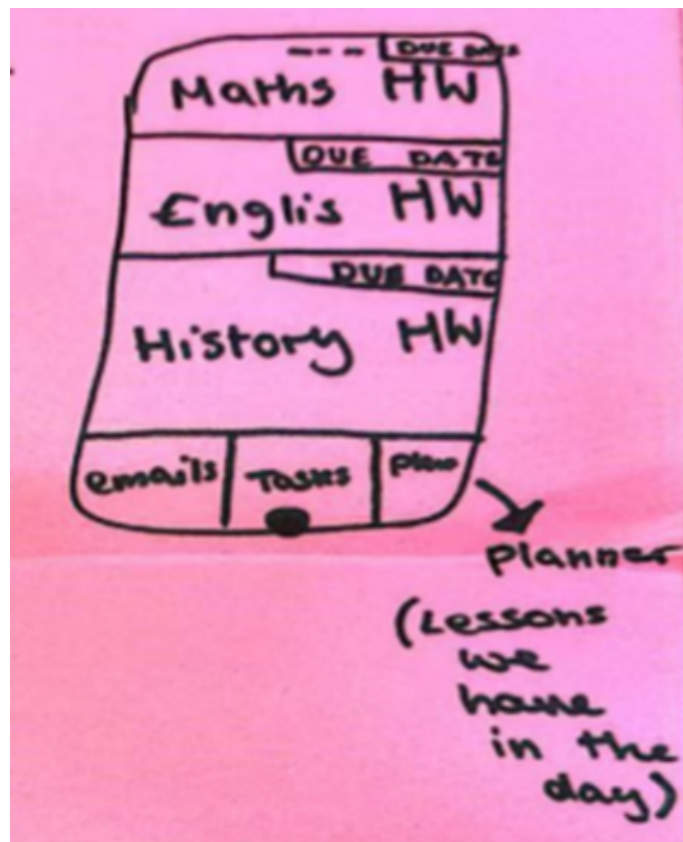 --- DUE DATE
Maths HW
DUE DATE
Englis HW
DUE DATE
History HW
emails Tasks Plan
Planner
(Lessons
we
have
in the
day)